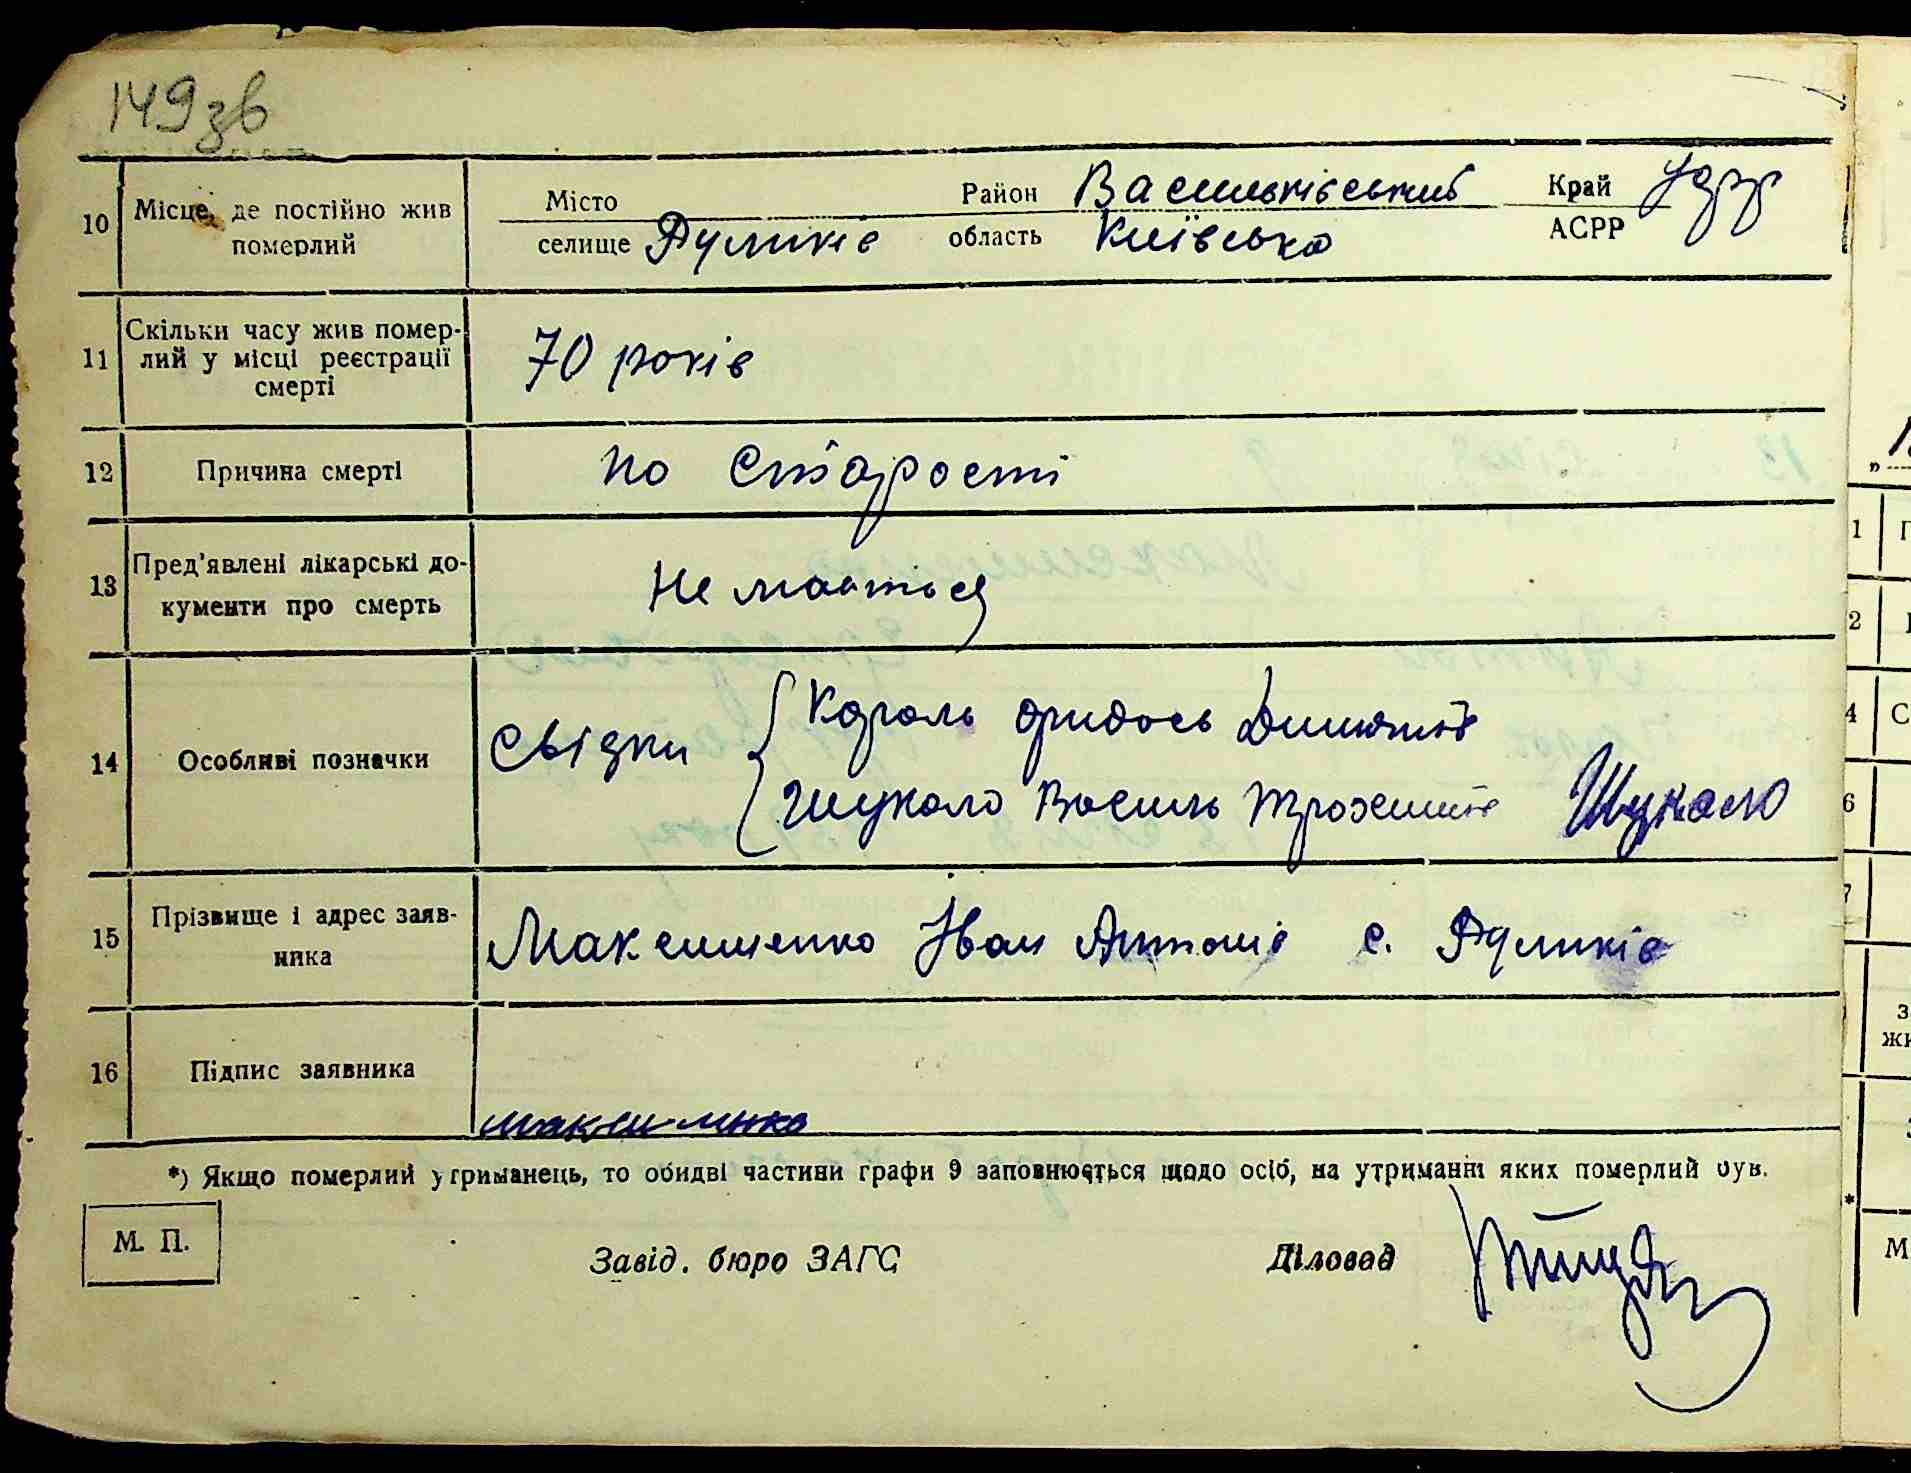 149зв
10 Місце, де постійно жив померлий
Місто Район Васильківський Край УСРР
селище Руликів область Київська АСРР
11 Скільки часу жив помер-
лий у місці реєстрації
смерті
70 років
12 Причина смерті по старості
13 Пред'явлені лікарські до-
кументи про смерть
Не мається
14 Особливі позначки
Свідки Король
Шукало Василь Трохимів Шукало
15 Прізвище і адрес заяв-
ника
Максименко Іван Антонів с. Руликів
16 Підпис заявника
Максименко
*) Якщо померлий утриманець, то обидві частини графи 9 заповнюється щодо осіб, на утриманні яких померлий був.
М. П.
Завід. бюро ЗАГС Діловод